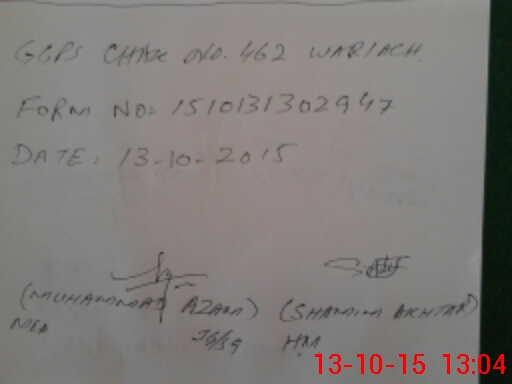 GGPS CHAK NO. 462 WARIACH.
FORM NO: 1510131302947
DATE: 13-10-2015
(MUHAMMAD AZAM) (SHAMIM AKHTAR)
MEA HM
13-10-15 13:04